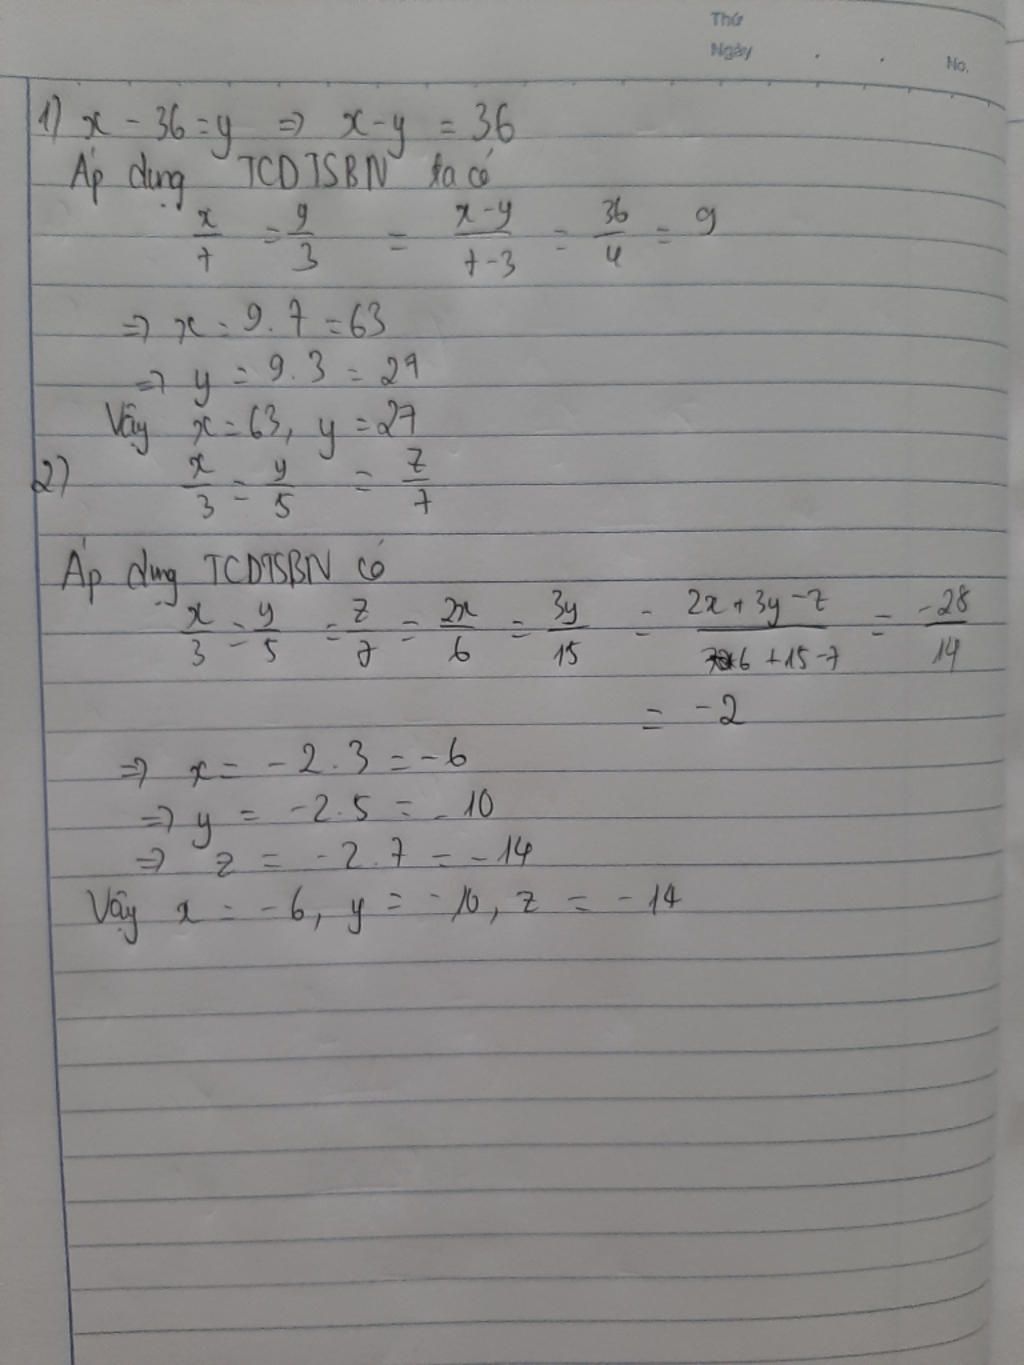 Thứ
Ngày . .
No.
1) x - 36 = y => x - y = 36
Áp dụng TCDTSBN ta có
x/7 = y/3 = x-y/7-3 = 36/4 = 9
=> x = 9.7 = 63
=> y = 9.3 = 27
Vậy x = 63, y = 27
2) x/3 = y/5 = z/7
Áp dụng TCDTSBN có
x/3 = y/5 = z/7 = 2x/6 = 3y/15 = 2x+3y-z/6+15-7 = -28/14
= -2
=> x = -2.3 = -6
=> y = -2.5 = -10
=> z = -2.7 = -14
Vậy x = -6, y = -10, z = -14